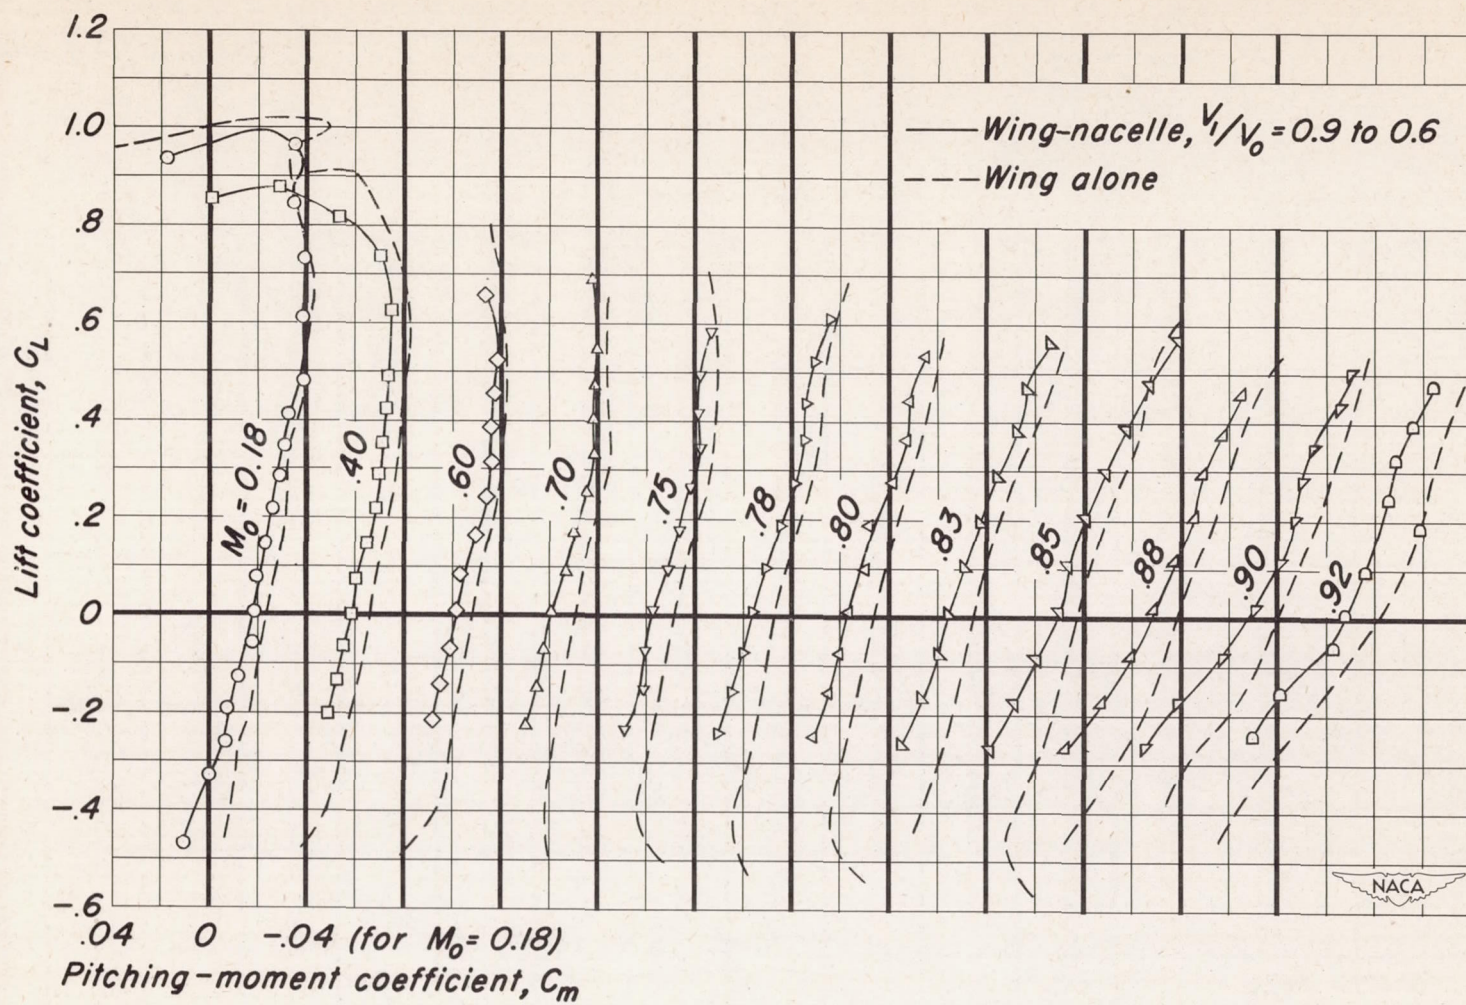 1.2
1.0
.8
.6
.4
.2
0
-.2
-.4
-.6
Lift coefficient, C_L
Wing-nacelle, V₁/V₀ = 0.9 to 0.6
Wing alone
M₀ = 0.18
.40
.60
.70
.75
.78
.80
.83
.85
.88
.90
.92
NACA
.04 0 -.04 (for M₀ = 0.18)
Pitching-moment coefficient, C_m